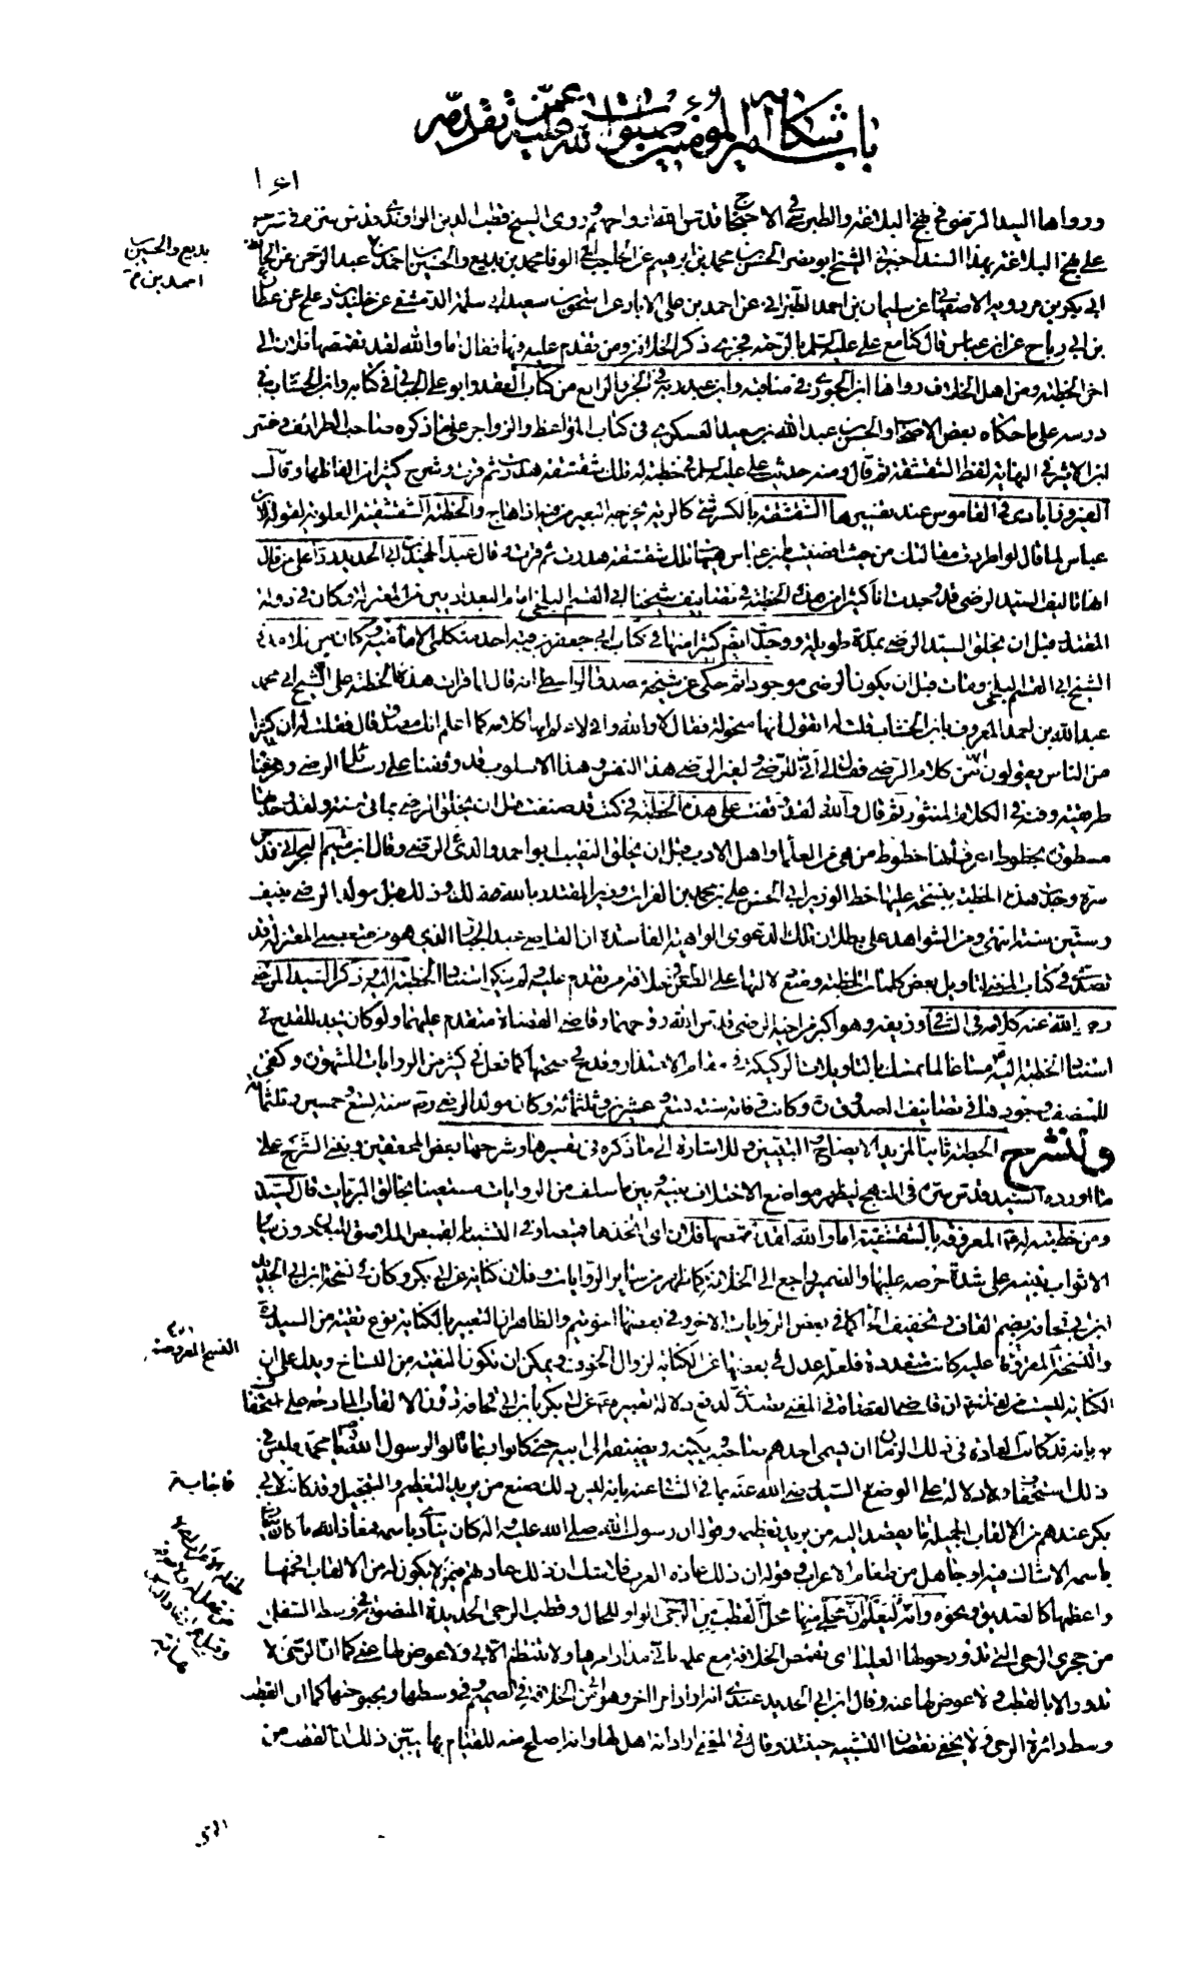 باب شكاية أمير المؤمنين صلوات الله عليه عمن تقدمه
ورواها السيد الرضي في نهج البلاغة والطبرسي في الاحتجاج قدس الله ارواحهم وروى الشيخ قطب الدين الراوندي قدس سره في شرحه
على نهج البلاغة بهذا السند اخبرني الشيخ ابو نصر الحسن بن محمد بن ابرهيم عن الحاجب ابي الوفا محمد بن بديع والحسين بن احمد بن عبد الرحمن عن الحافظ
بديع والحسين
احمد بن
ابي بكر بن مردويه الاصفهاني عن سليمان بن احمد الطبراني عن احمد بن علي الابار عن اسحق بن سعيد ابي سلمة الدمشقي عن خليد بن دعلج عن عطاء
بن ابي رباح عن ابن عباس قال كنا مع علي عليه السلم بالرحبة فجرى ذكر الخلافة ومن تقدم عليه فيها فقال اما والله لقد تقمصها فلان الى
اخر الخطبة ومن اهل الخلاف رواها ابن الجوزي في مناقبه وابن عبد ربه في الجزء الرابع من كتاب العقد وابو علي الجبائي في كتابه وابن الخشاب في
درسه على ما حكاه بعض الاصحاب والحسن بن عبد الله بن سعيد العسكري في كتاب المواعظ والزواجر على ما ذكره صاحب الطرائف وفسر
ابن الاثير في النهاية لفظ الشقشقة ثم قال ومنه حديث علي عليه السلم في خطبة له تلك شقشقة هدرت ثم قرت وشرح كثيرا من الفاظها وقال
الفيروزابادي في القاموس عند تفسيرها الشقشقة بالكسر شيء كالرية يخرجه البعير من فيه اذا هاج والخطبة الشقشقية العلوية لقوله لابن
عباس لما قال لو اطردت مقالتك من حيث افضيت يا بن عباس هيهات تلك شقشقة هدرت ثم قرت وقال عبد الحميد بن ابي الحديد ردا على من قال
انها تاليف السيد الرضي قد وجدت انا كثيرا من هذه الخطبة في تصانيف شيخنا ابي القسم البلخي امام البغداديين من المعتزلة وكان في دولة
المقتدر قبل ان يخلق السيد الرضي بمدة طويلة ووجدت ايضا كثيرا منها في كتاب ابي جعفر بن قبة احد متكلمي الامامية وكان من تلامذة
الشيخ ابي القسم البلخي ومات قبل ان يكون الرضي موجودا ثم حكى عن شيخه مصدق الواسطي انه قال لما قرات هذه الخطبة على الشيخ ابي محمد
عبد الله بن احمد المعروف بابن الخشاب قلت له اتقول انها منحولة فقال لا والله واني لاعلم انها كلامه كما اعلم انك مصدق قال فقلت له ان كثيرا
من الناس يقولون انها من كلام الرضي فقال لي انى للرضي ولغير الرضي هذا النفس وهذا الاسلوب قد وقفنا على رسائل الرضي وعرفنا
طريقته وفنه في الكلام المنثور ثم قال والله لقد وقفت على هذه الخطبة في كتب قد صنفت قبل ان يخلق الرضي بمائتي سنة ولقد وجدتها
مسطورة بخطوط اعرف انها خطوط من هي من العلماء واهل الادب قبل ان يخلق النقيب ابو احمد والد الرضي وقال ابن ميثم البحراني قدس
سره وجدت هذه الخطبة بنسخة عليها خط الوزير ابي الحسن علي بن محمد بن الفرات وزير المقتدر بالله وذلك قبل مولد الرضي بنيف
وستين سنة انتهى ومن الشواهد على بطلان تلك الدعوى الواهية الفاسدة ان القاضي عبد الجبار الذي هو من متعصبي المعتزلة قد
تصدى في كتاب المغني لتاويل بعض كلمات الخطبة ومنع دلالتها على الطعن في خلافة من تقدم عليه ولم ينكر استناد الخطبة اليه وذكر السيد المرتضى
رضي الله عنه كلامه في الشافي وزيفه وهو اكبر من اخيه الرضي قدس الله روحهما وقاضي القضاة متقدم عليهما ولو كان يجد للقدح في
استناد الخطبة اليه مساغا لما تمسك بالتاويلات الركيكة في مقام الاعتذار وقدح في صحتها كما فعل في كثير من الروايات المشهورة وكفى
للمنصف وجودها في تصانيف الصدوق ره وكانت وفاته سنة تسع وعشرين وثلثمائة وكان مولد الرضي ره سنة تسع وخمسين وثلثمائة
ولنشرح الخطبة ثانيا لمزيد الايضاح والتبيين وللاشارة الى ما ذكره في تفسيرها وشرحها بعض المحققين ونبني الشرح على
ما اورده السيد قدس سره في النهج ليظهر مواضع الاختلاف بينه وبين ما سلف من الروايات مستعينا بخالق البريات قال السيد
ومن خطبة له المعروفة بالشقشقية اما والله لقد تقمصها فلان اي اتخذها قميصا وفي التشبيه بالقميص الملاصق للبدن دون ساير
الاثواب تنبيه على شدة حرصه عليها والضمير راجع الى الخلافة كما ظهر من ساير الروايات وفلان كناية عن ابي بكر وكان في نسخة ابن ابي الحديد
ابن ابي قحافة بضم القاف وتخفيف الحاء كما في بعض الروايات الاخر وفي بعضها اخو تيم والظاهر ان التعبير بالكناية نوع تقية من السيد ره
والنسخة المقروءة عليه كانت متعددة فلعله عدل في بعضها عن الكناية لزوال الخوف ويمكن ان تكون التقية من النساخ ويدل على ان
الكناية ليست من لفظه ان قاضي القضاة في المغني تصدى لدفع دلالة تعبيره عن ابي بكر بابن ابي قحافة دون الالقاب المادحة على استخفاف
به بانه قد كانت العادة في ذلك الزمان ان يسمي احدهم صاحبه ويكنيه ويضيفه الى ابيه حتى كانوا ربما قالوا لرسول الله يا محمد فليس في
ذلك استخفاف ولا دلالة على الوضع السيد رضي الله عنه بما في الشافي عنه بانه ليس ذلك صنع من يريد التعظيم والتبجيل وقد كانت لابي
فاجاب
بكر عندهم من الالقاب الجميلة ما يقصد اليه من يريد تعظيمه وقوله ان رسول الله صلى الله عليه واله كان ينادى باسمه فمعاذ الله ما كان ينادى
باسمه الا شاك فيه او جاهل من طغام الاعراب وقوله ان ذلك عادة العرب فلا شك ان ذلك عادتهم فيمن لا يكون له من الالقاب افخمها
واعظمها كالصديق ونحوه وانه ليعلم ان محلي منها محل القطب من الرحى الواو للحال وقطب الرحى الحديدة المنصوبة في وسط السفلى
من حجري الرحى التي تدور حولها العليا اي تقمص الخلافة مع علمه باني مدار امرها ولا تنتظم الا بي ولا عوض لها عني كما ان الرحى لا
تدور الا بالقطب ولا عوض لها عنه وقال ابن ابي الحديد عندي انه اراد امرا اخر وهو اني من الخلافة في الصميم وفي وسطها وبحبوحتها كما ان القطب
وسط دائرة الرحى ولا يخفى نقصان التشبيه حينئذ وقال في المغني اراد انه اهل لها وانه اصلح منه للقيام بها يبين ذلك ان القطب من